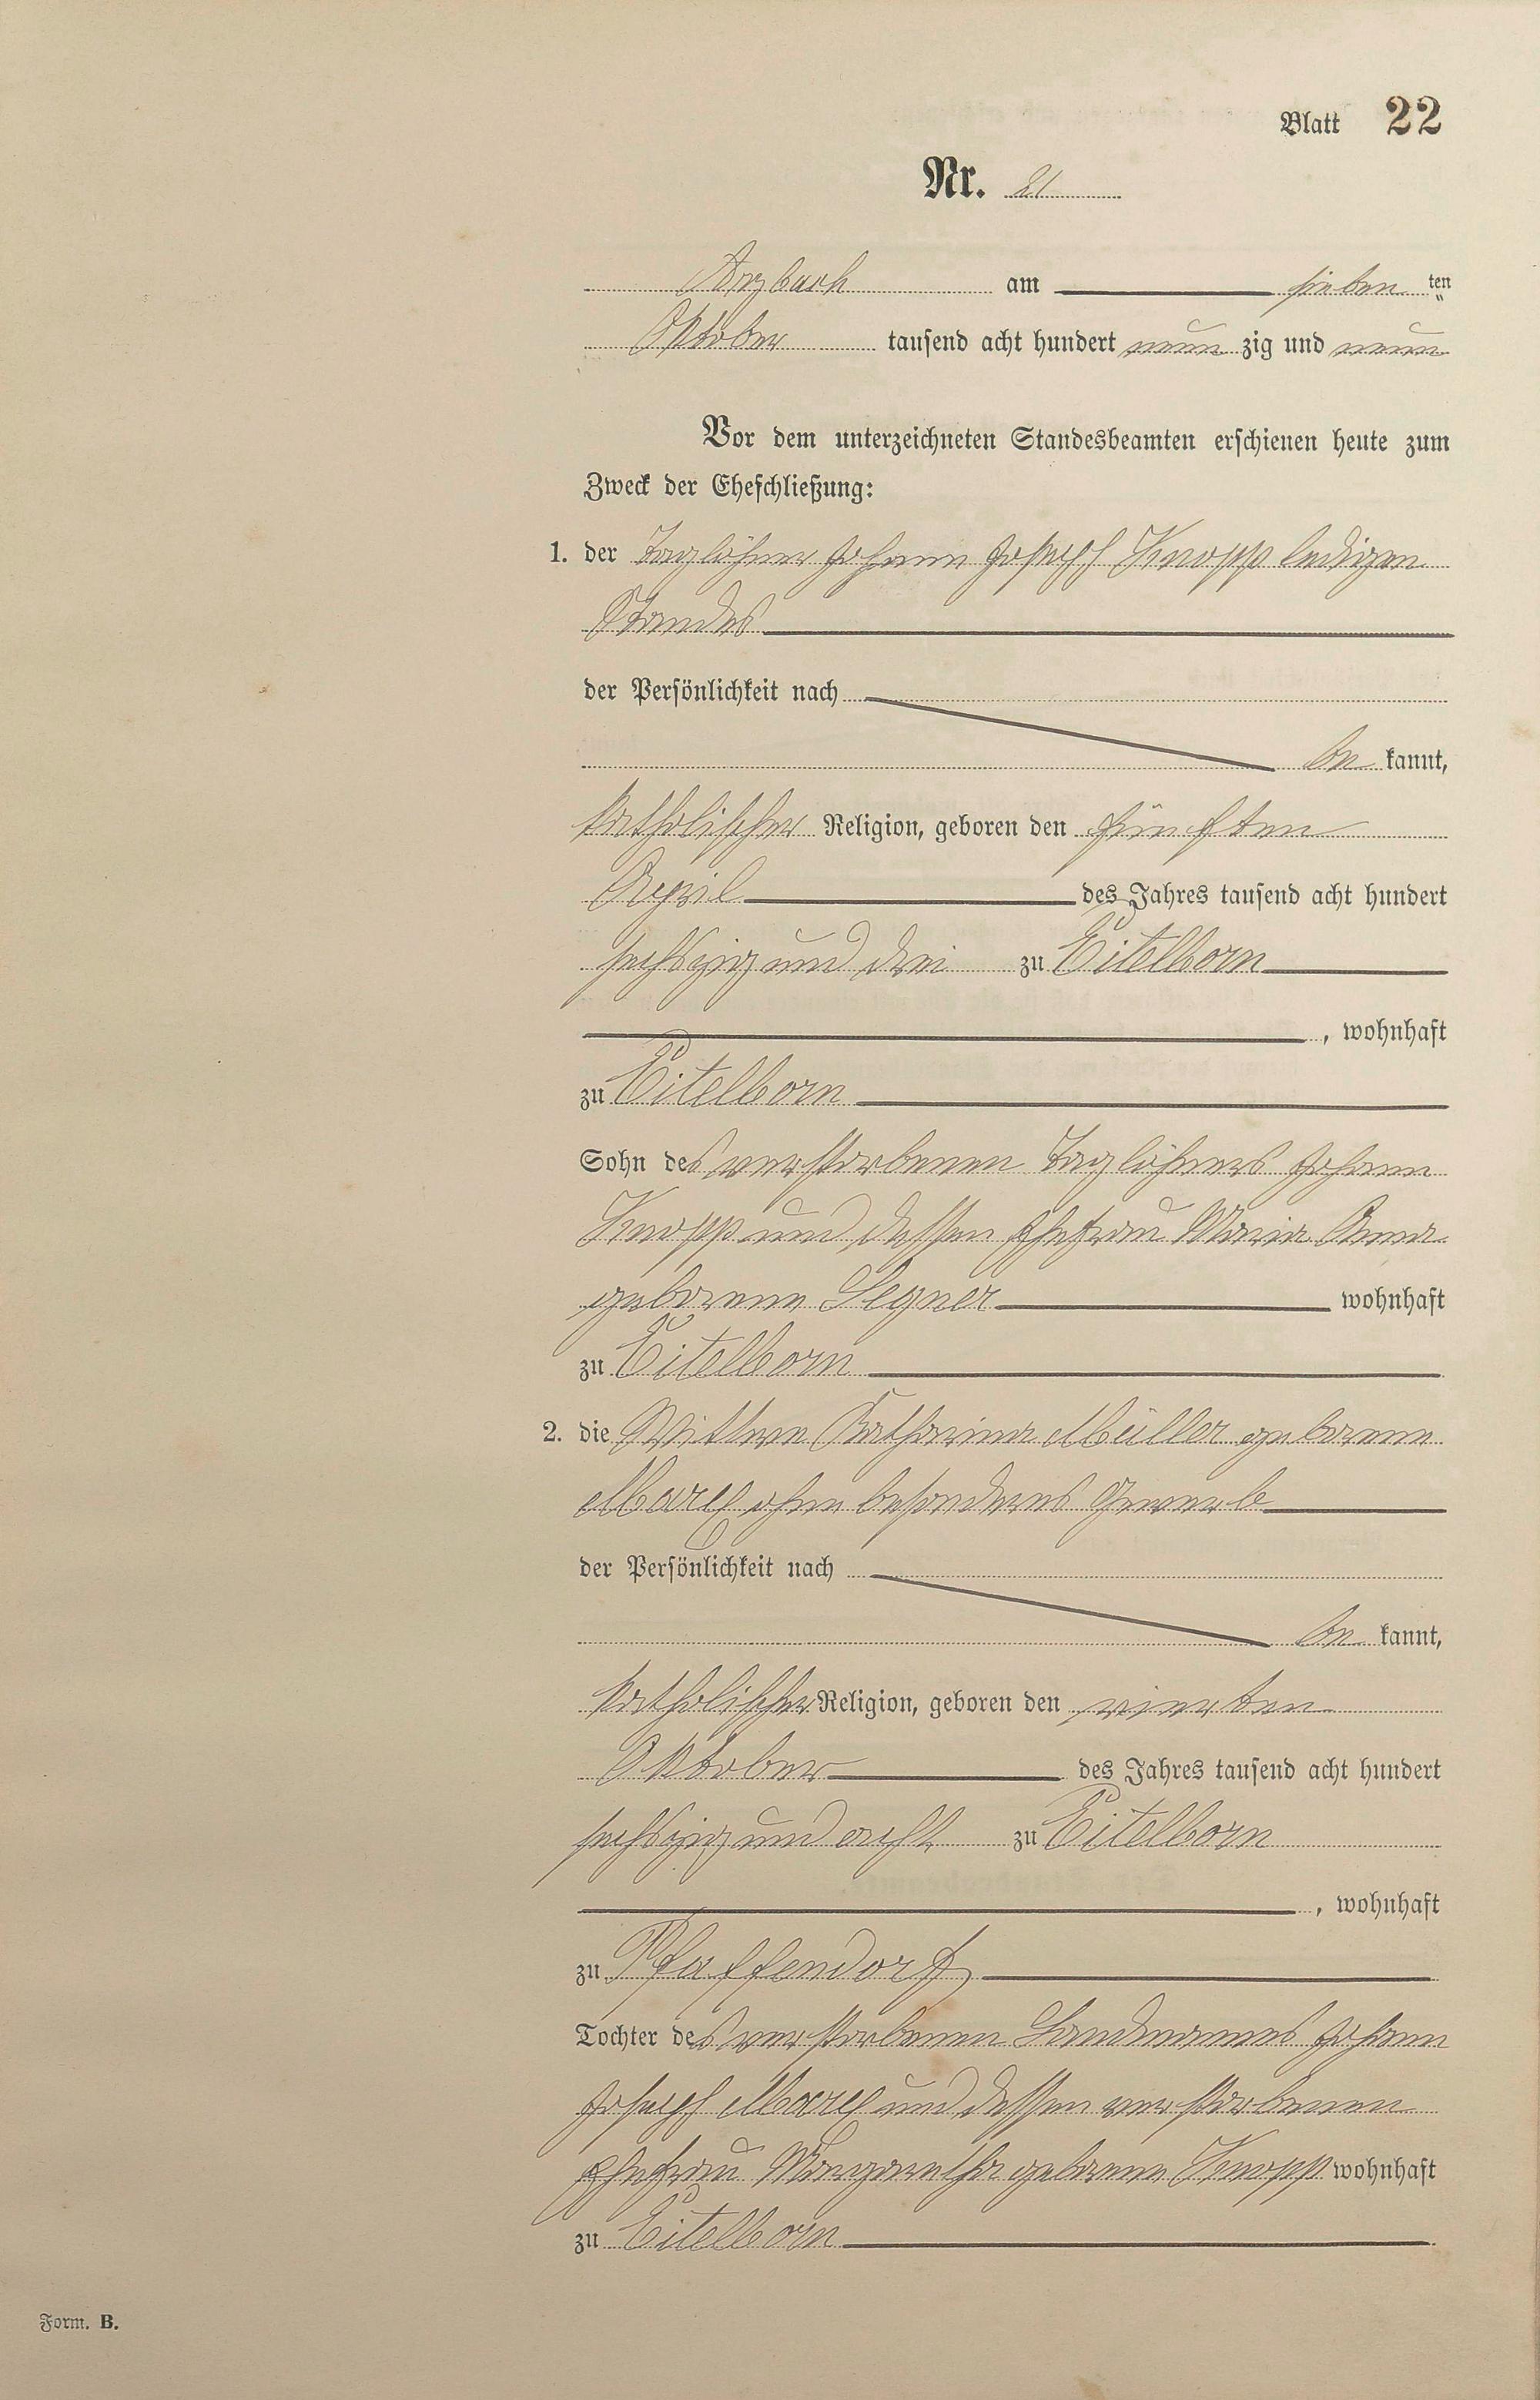 Blatt 22
Nr. 21
Arzbach am sieben ten
Oktober tausend acht hundert neun zig und neun
Vor dem unterzeichneten Standesbeamten erschienen heute zum
Zweck der Eheschließung:
1. der Taglöhner Johann Joseph Knopp ledigen
Standes
der Persönlichkeit nach
be kannt,
katholischer Religion, geboren den fünften
April des Jahres tausend acht hundert
sechszig und drei zu Eitelborn
, wohnhaft
zu Eitelborn
Sohn des verstorbenen Taglöhners Johann
Knopp und dessen Ehefrau Maria Anna
geborene Legner wohnhaft
zu Eitelborn
2. die Wittwe Katharina Müller geborene
Marx ohne besonderes Gewerbe
der Persönlichkeit nach
be kannt,
katholischer Religion, geboren den vierten
Oktober des Jahres tausend acht hundert
sechszig und acht zu Eitelborn
, wohnhaft
zu Pfaffendorf
Tochter des verstorbenen Landmannes Johann
Joseph Marx und dessen verstorbenen
Ehefrau Margaretha geborene Knopp wohnhaft
zu Eitelborn
Form. B.